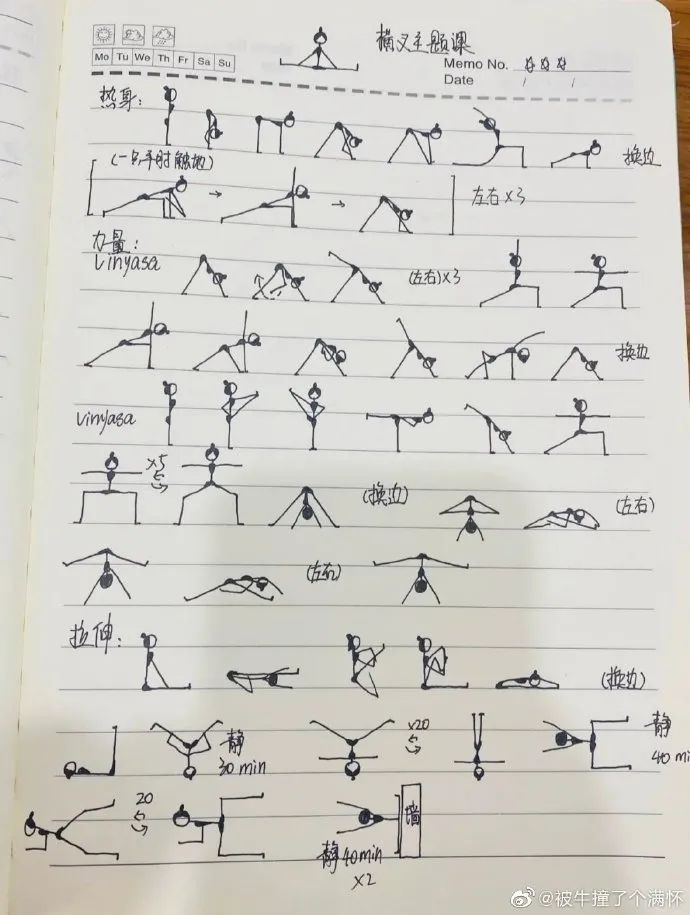 横叉主题课
Mo Tu We Th Fr Sa Su
Memo No.
Date / /
热身:
换边
左右×3
力量:
Vinyasa
(左右)×3
换边
Vinyasa
×5
(换边)
(左右)
(左右)
拉伸:
(换边)
静
30 min
×20
静
40 mi
20
墙
静40min
×2
@被牛撞了个满怀